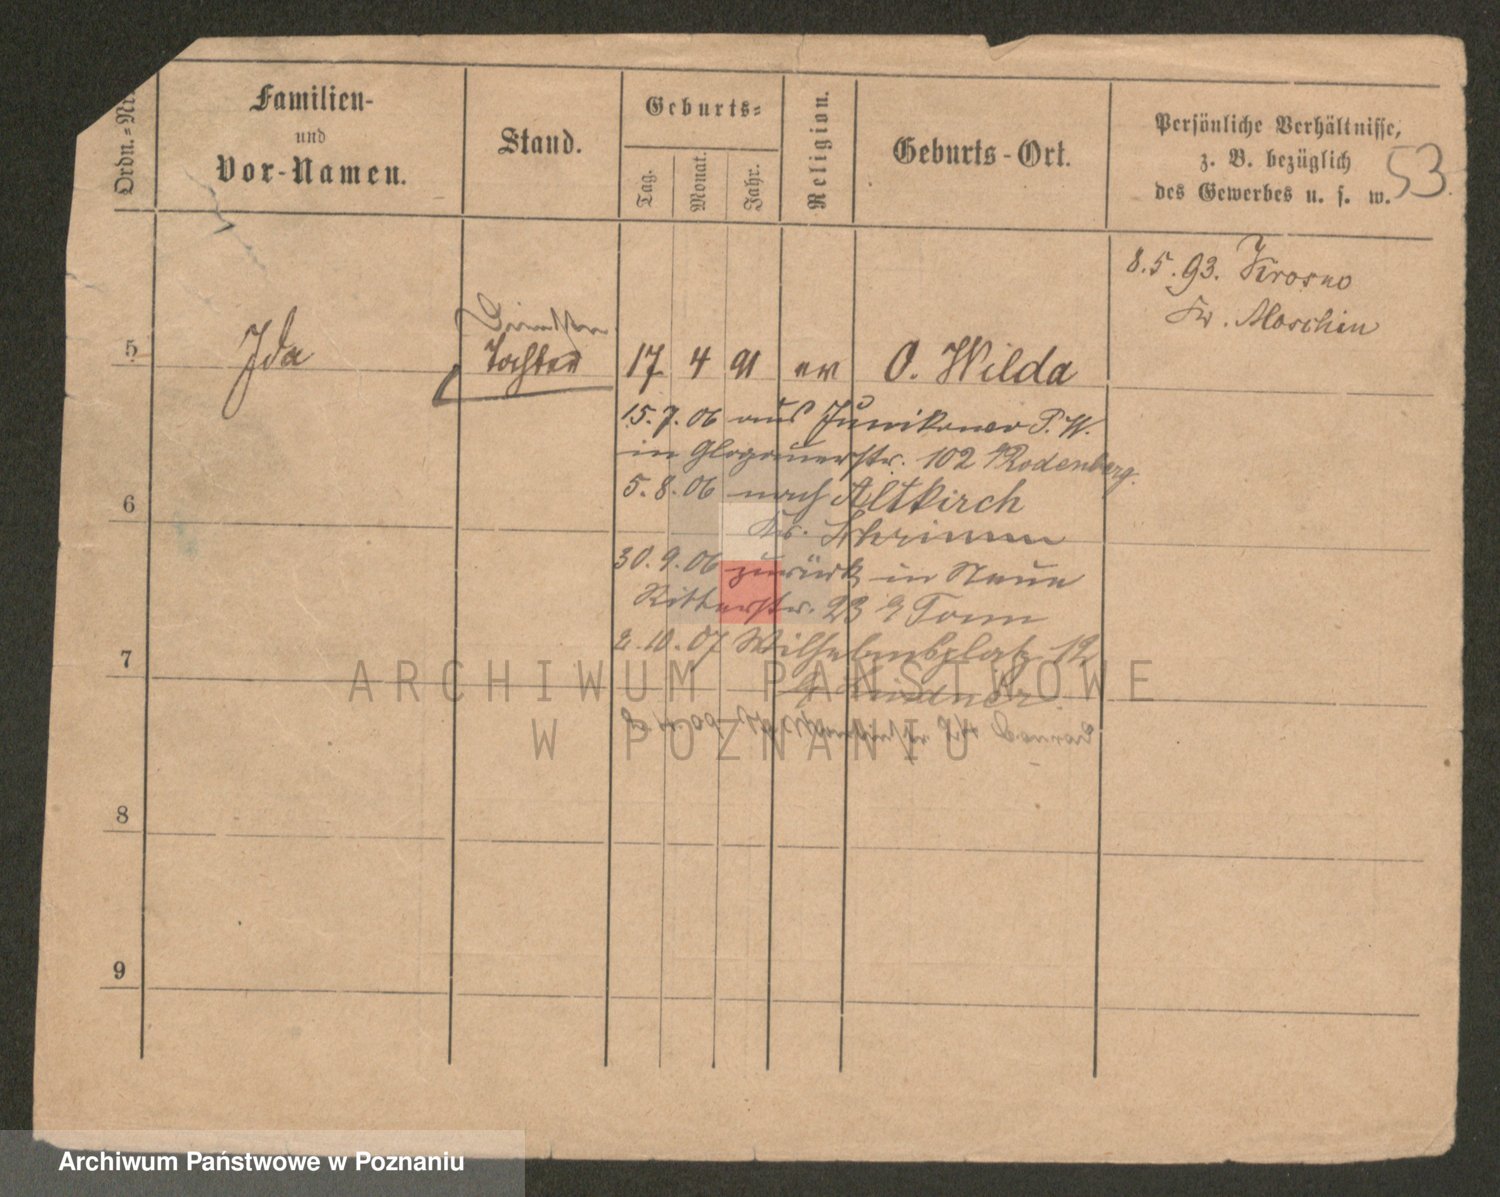 Ordn.-Nr.
Familien-
und
Vor-Namen.
Stand.
Geburts-
Tag.
Monat.
Jahr.
Religion.
Geburts-Ort.
Persönliche Verhältnisse,
z. B. bezüglich
des Gewerbes u. s. w.
53
8.5.93. Krosno
Kr. Moschin
5
Ida
Tochter
17 4 91 ev O. Wilda
15.7.06 aus Junikowo P. W.
in Glogauerstr. 102 Rodenberg.
6
5.8.06 nach Altkirch
Kr. Schrimm
30.9.06 zurück in Neue
Ritterstr. 23
7
2.10.07 Wilhelmsplatz 12
8
9
ARCHIWUM PAŃSTWOWE
W POZNANIU
Archiwum Państwowe w Poznaniu